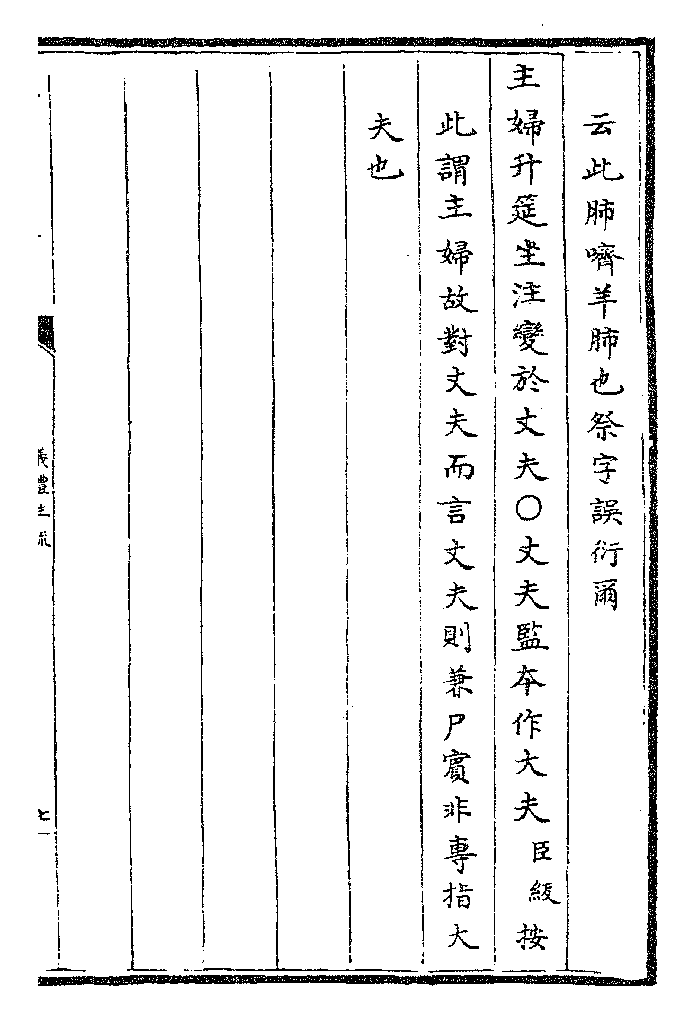 云此肺嚌羊肺也祭字誤衍爾
主婦升筵坐注變於丈夫〇丈夫監本作大夫臣紱按
此謂主婦故對丈夫而言丈夫則兼尸賓非專指大
夫也
儀禮注疏